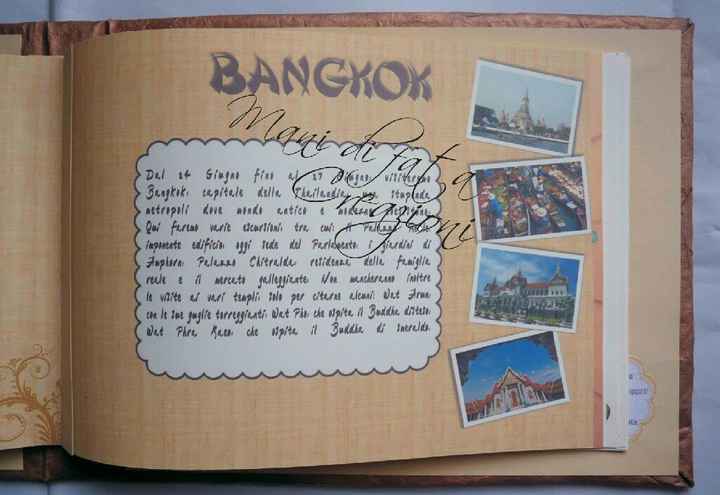 BANGKOK
Mani di fata
Creazioni
Dal 24 Giugno fino al 27 Giugno, visiteremo
Bangkok, capitale della Thailandia, una stupenda
metropoli dove mondo antico e moderno
Qui faremo varie escursioni, tra cui: il Palazzo
imponente edificio, oggi sede del Parlamento, i giardini di
Amphorn, Palazzo Chitralda, residenza della famiglia
reale e il mercato galleggiante. Non mancheranno inoltre
le visite ai vari templi, solo per citarne alcuni: Wat Arun
con le sue guglie torreggianti, Wat Pho, che ospita il Buddha disteso,
Wat Phra Kaeo, che ospita il Buddha di smeraldo.